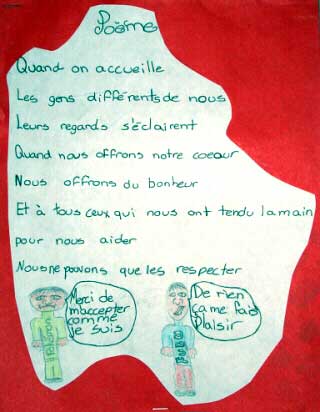 Poème
Quand on accueille
Les gens différents de nous
Leurs regards s'éclairent
Quand nous offrons notre coeur
Nous offrons du bonheur
Et à tous ceux qui nous ont tendu la main
pour nous aider
Nous ne pouvons que les respecter
Merci de
m'accepter
comme
je suis
De rien
ça me fait
Plaisir